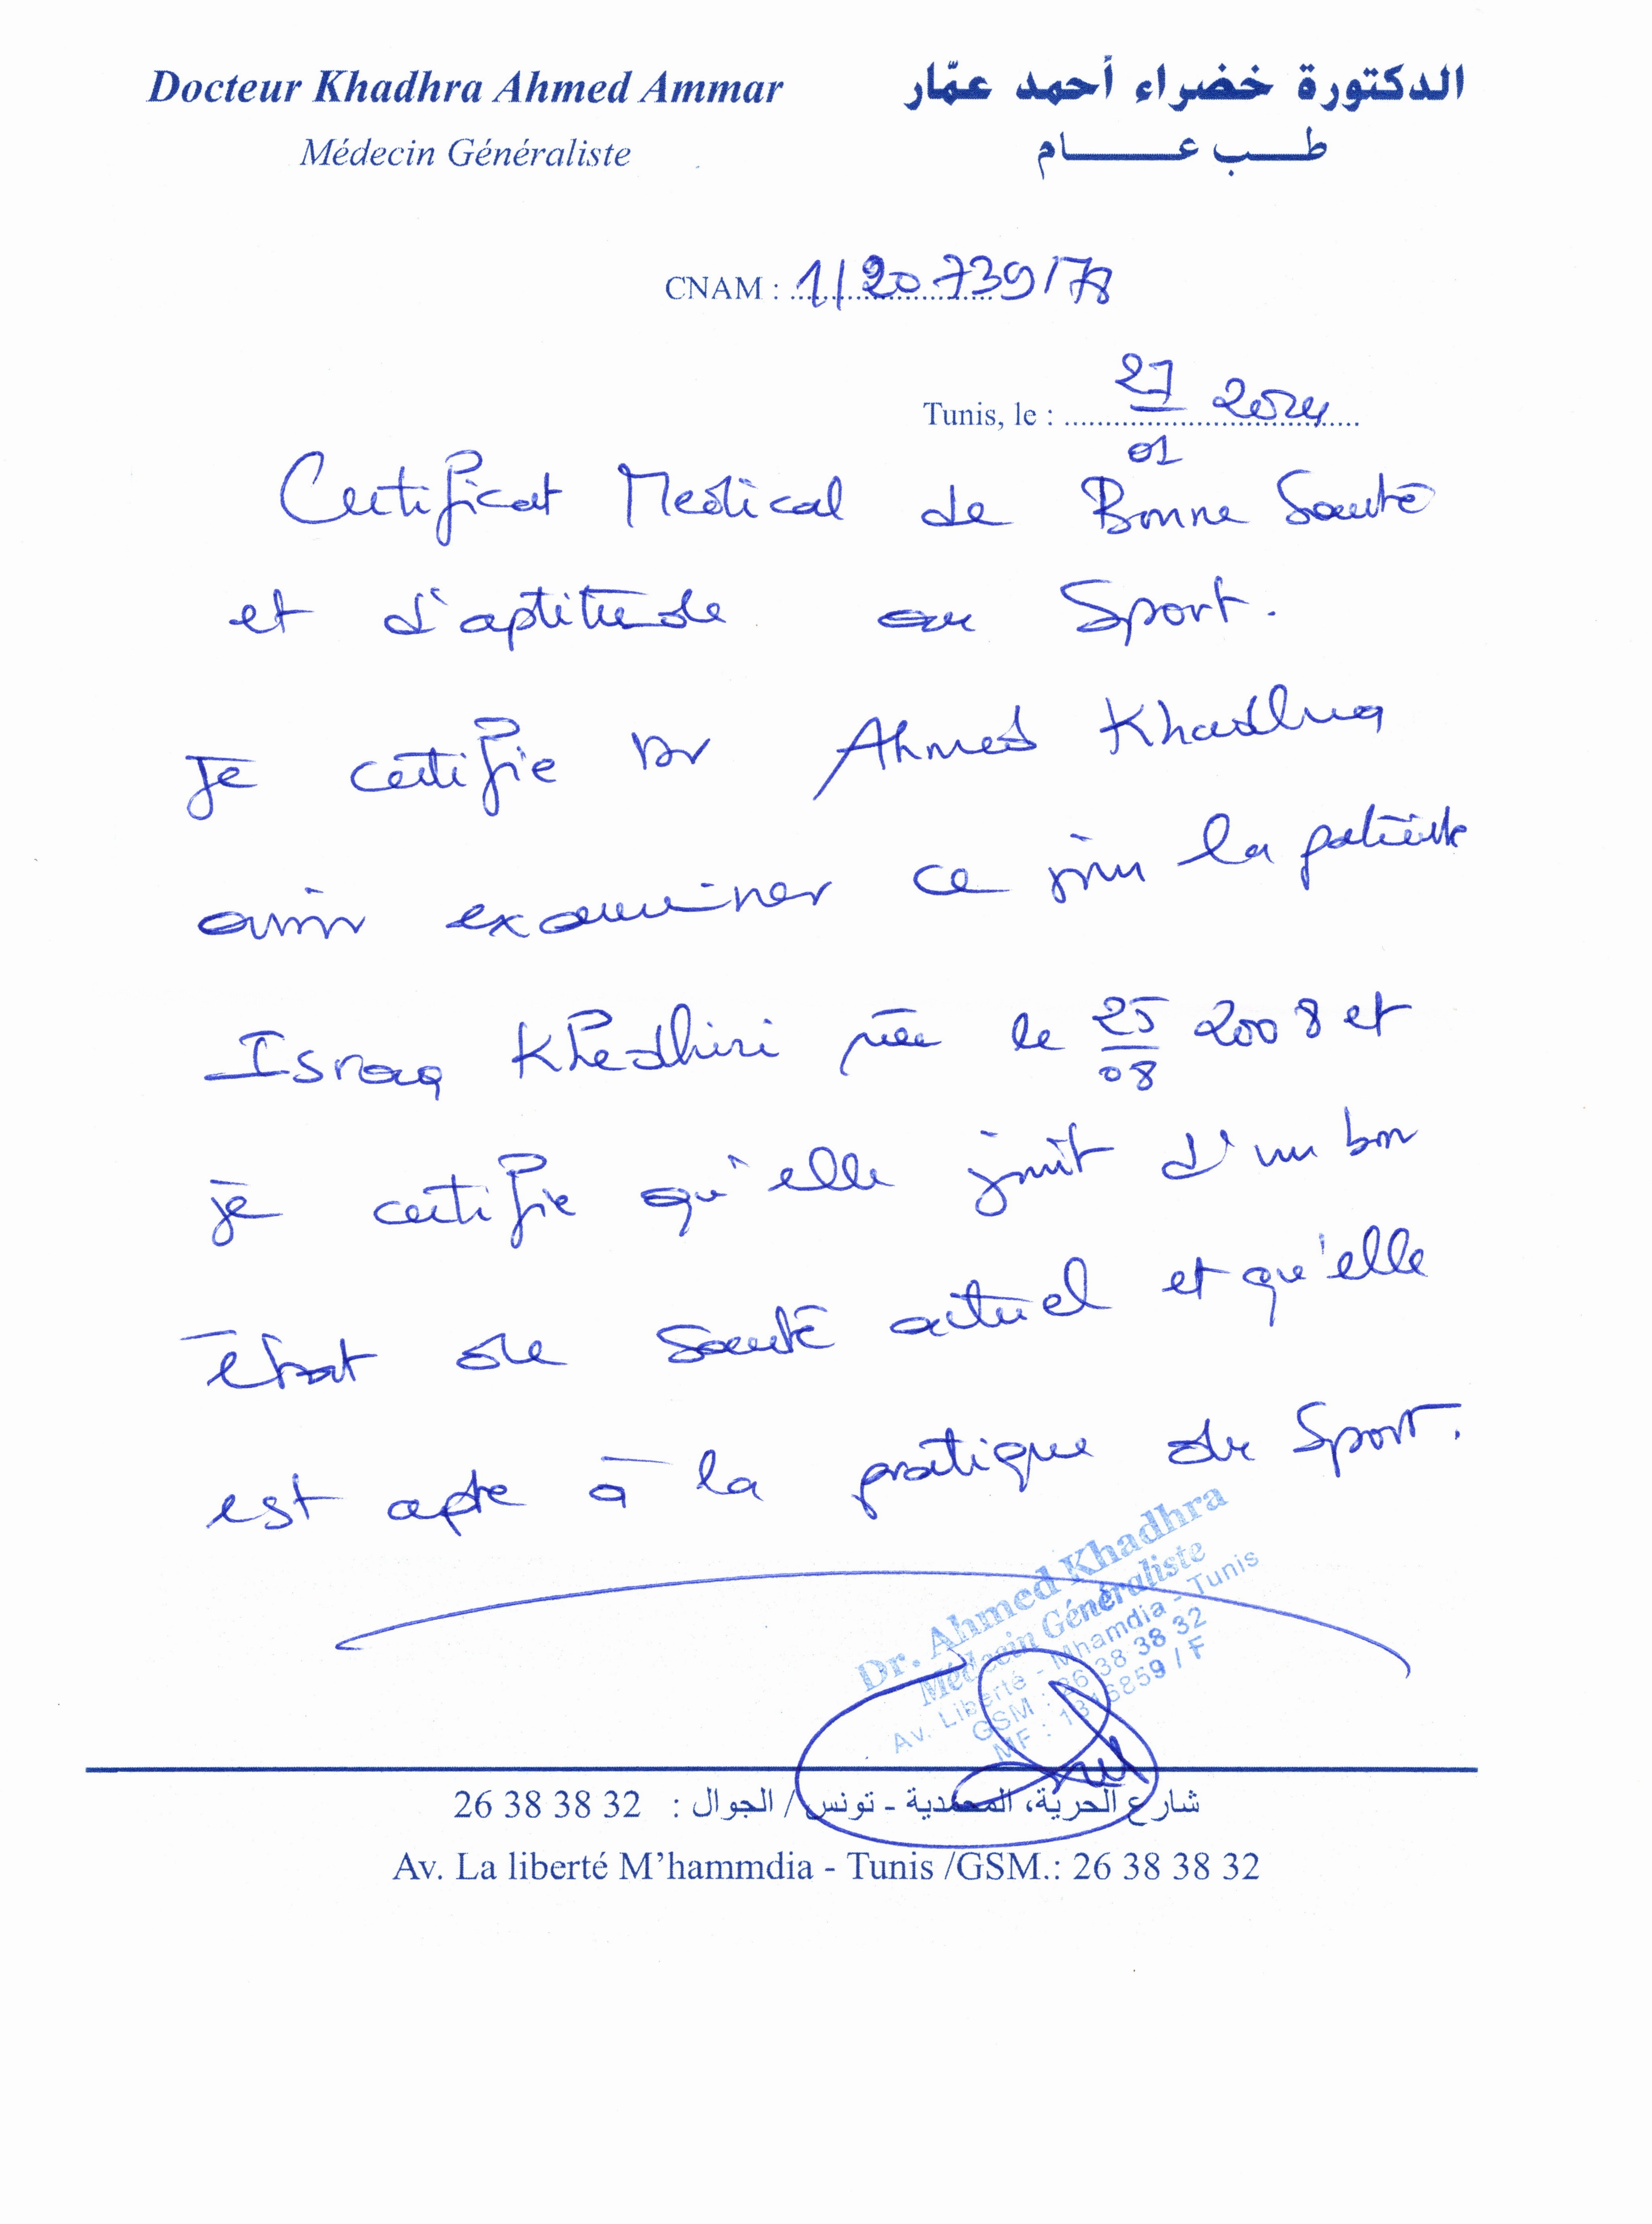 Docteur Khadhra Ahmed Ammar
الدكتورة خضراء أحمد عمّار
Médecin Généraliste
طب عام
CNAM : 1/20739/78
Tunis, le : 27/01 2024
Certificat Medical de Bonne Santé
et d'aptitude au Sport.
Je certifie Dr Ahmed Khadhra
avoir examiner ce jour la patiente
Israa Khedhiri née le 25/08 2008 et
je certifie qu'elle jouit d'un bon
état de santé actuel et qu'elle
est apte à la pratique du Sport.
Dr. Ahmed Khadhra
Médecin Généraliste
Av. Liberté - Mhamdia - Tunis
GSM : 26 38 38 32
MF : 1316859 / F
شارع الحرية، المحمدية - تونس / الجوال : 26 38 38 32
Av. La liberté M'hammdia - Tunis /GSM.: 26 38 38 32